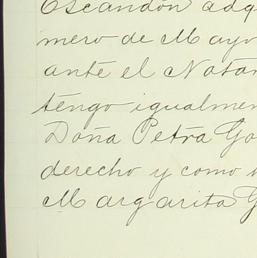 Escandón adq
mero de Mayo
ante el Notar
tengo igualmen
Doña Petra Go
derecho y como
Margarita G